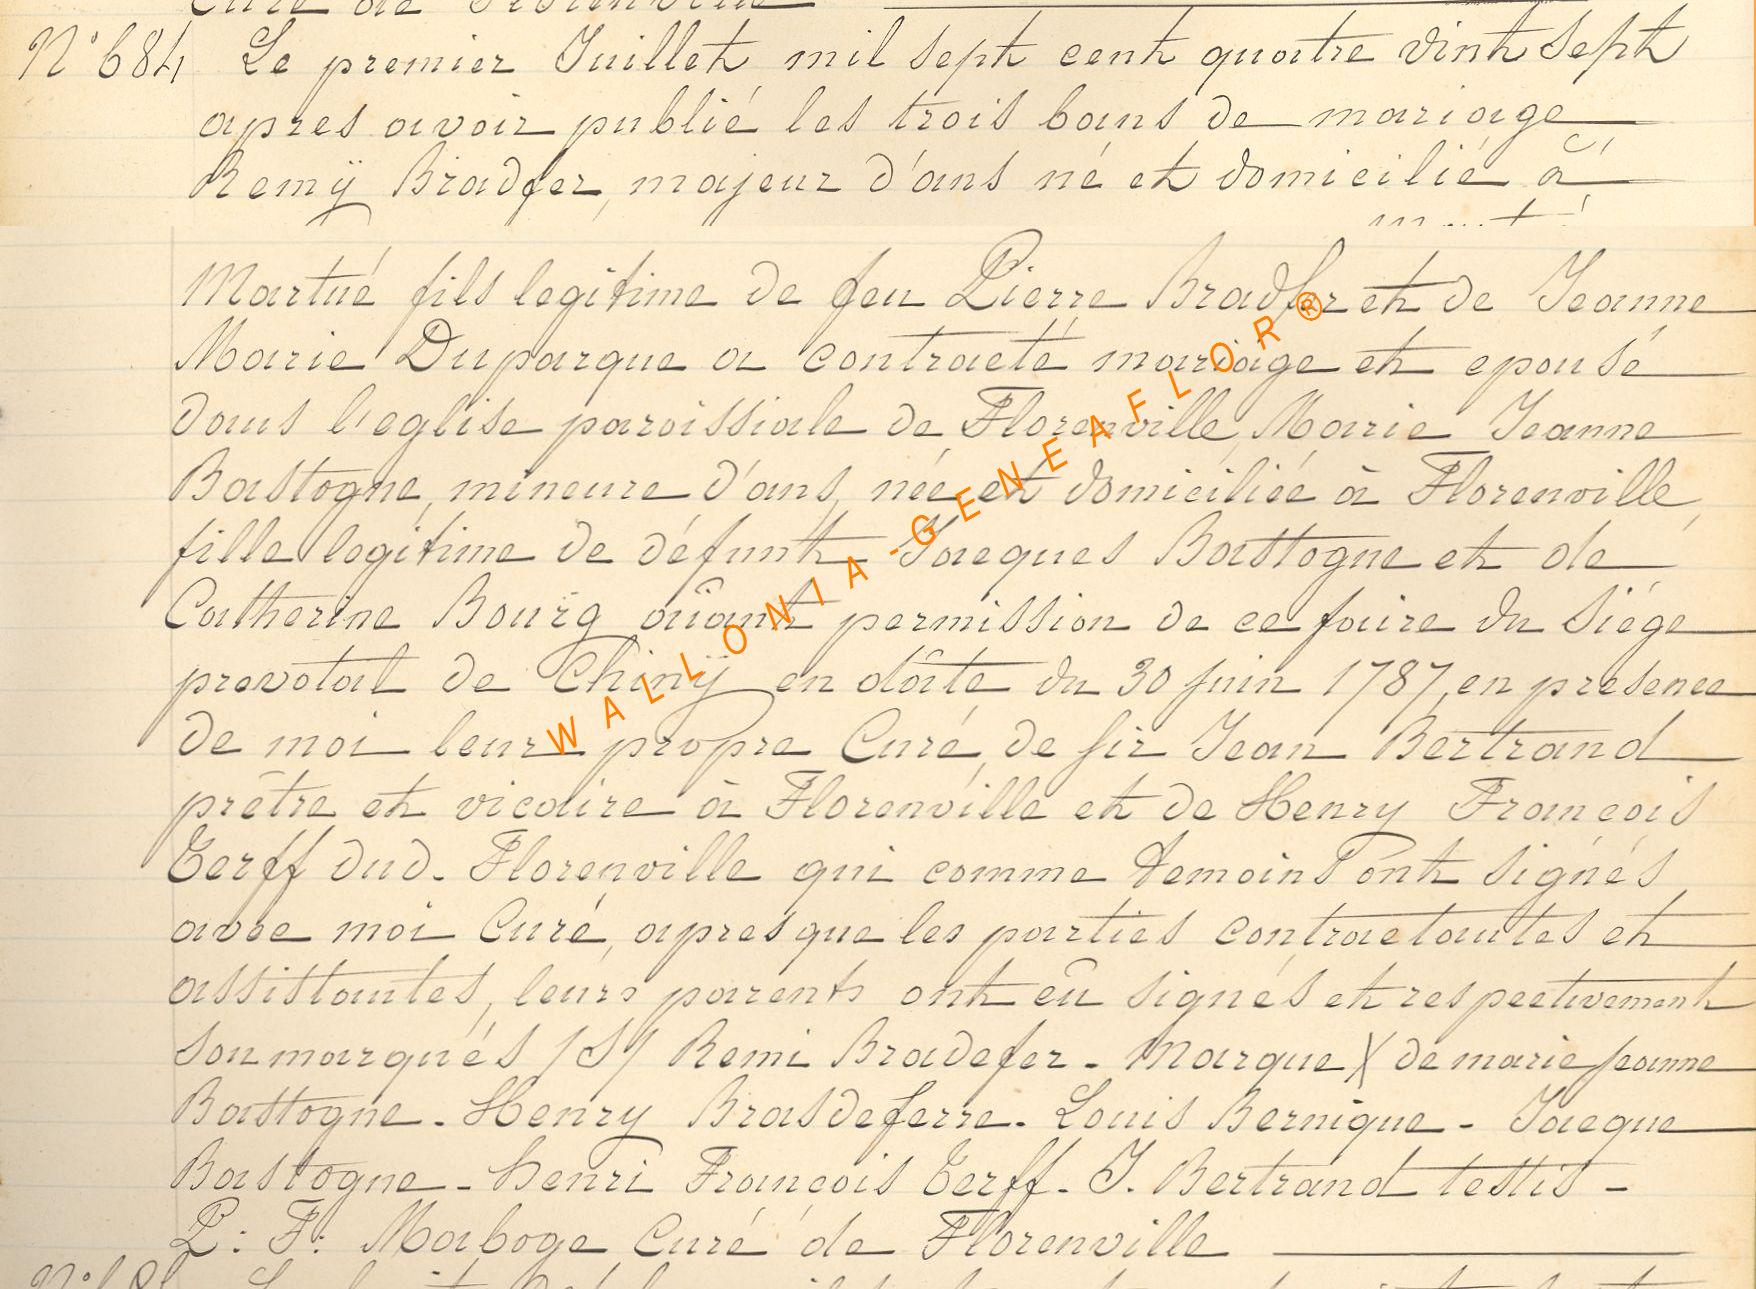 Curé de Florenville
N° 684 Le premier Juillet mil sept cent quatre vint sept
apres avoir publié les trois bans de mariage
Remÿ Bradfer, majeur d'ans né et domicilié à
Martué fils legitime de feu Pierre Bradfer et de Jeanne
Marie Duparque a contracté mariage et epousé
dans l'eglise paroissiale de Florenville, Marie Jeanne
Bastogne, mineure d'ans, née et domiciliée à Florenville,
fille legitime de défunt Jacques Bastogne et de
Catherine Bourg aûant permission de ce faire du Siége
prevotal de Chinÿ en dâte du 30 juin 1787, en presence
de moi leur propre Curé, de sir Jean Bertrand
prêtre et vicaire à Florenville et de Henry François
Terff dud. Florenville qui comme temoins ont signés
avec moi Curé, apres que les parties contractantes et
assistantes, leurs parents ont eû signés et respectivement
sou marqués /S/ Remi Bradefer - Marque X de marie jeanne
Bastogne - Henry Brasdeferre - Louis Bernique - Jacque
Bastogne - henri François Terff - J. Bertrand testis -
P: F: Maboge Curé de Florenville
WALLONIA-GENEAFLOR®